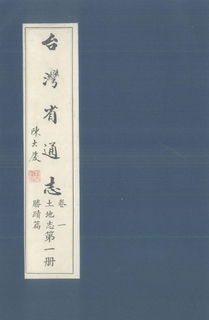 台灣省通志
陳大慶
卷一
土地志
勝蹟篇
第一册